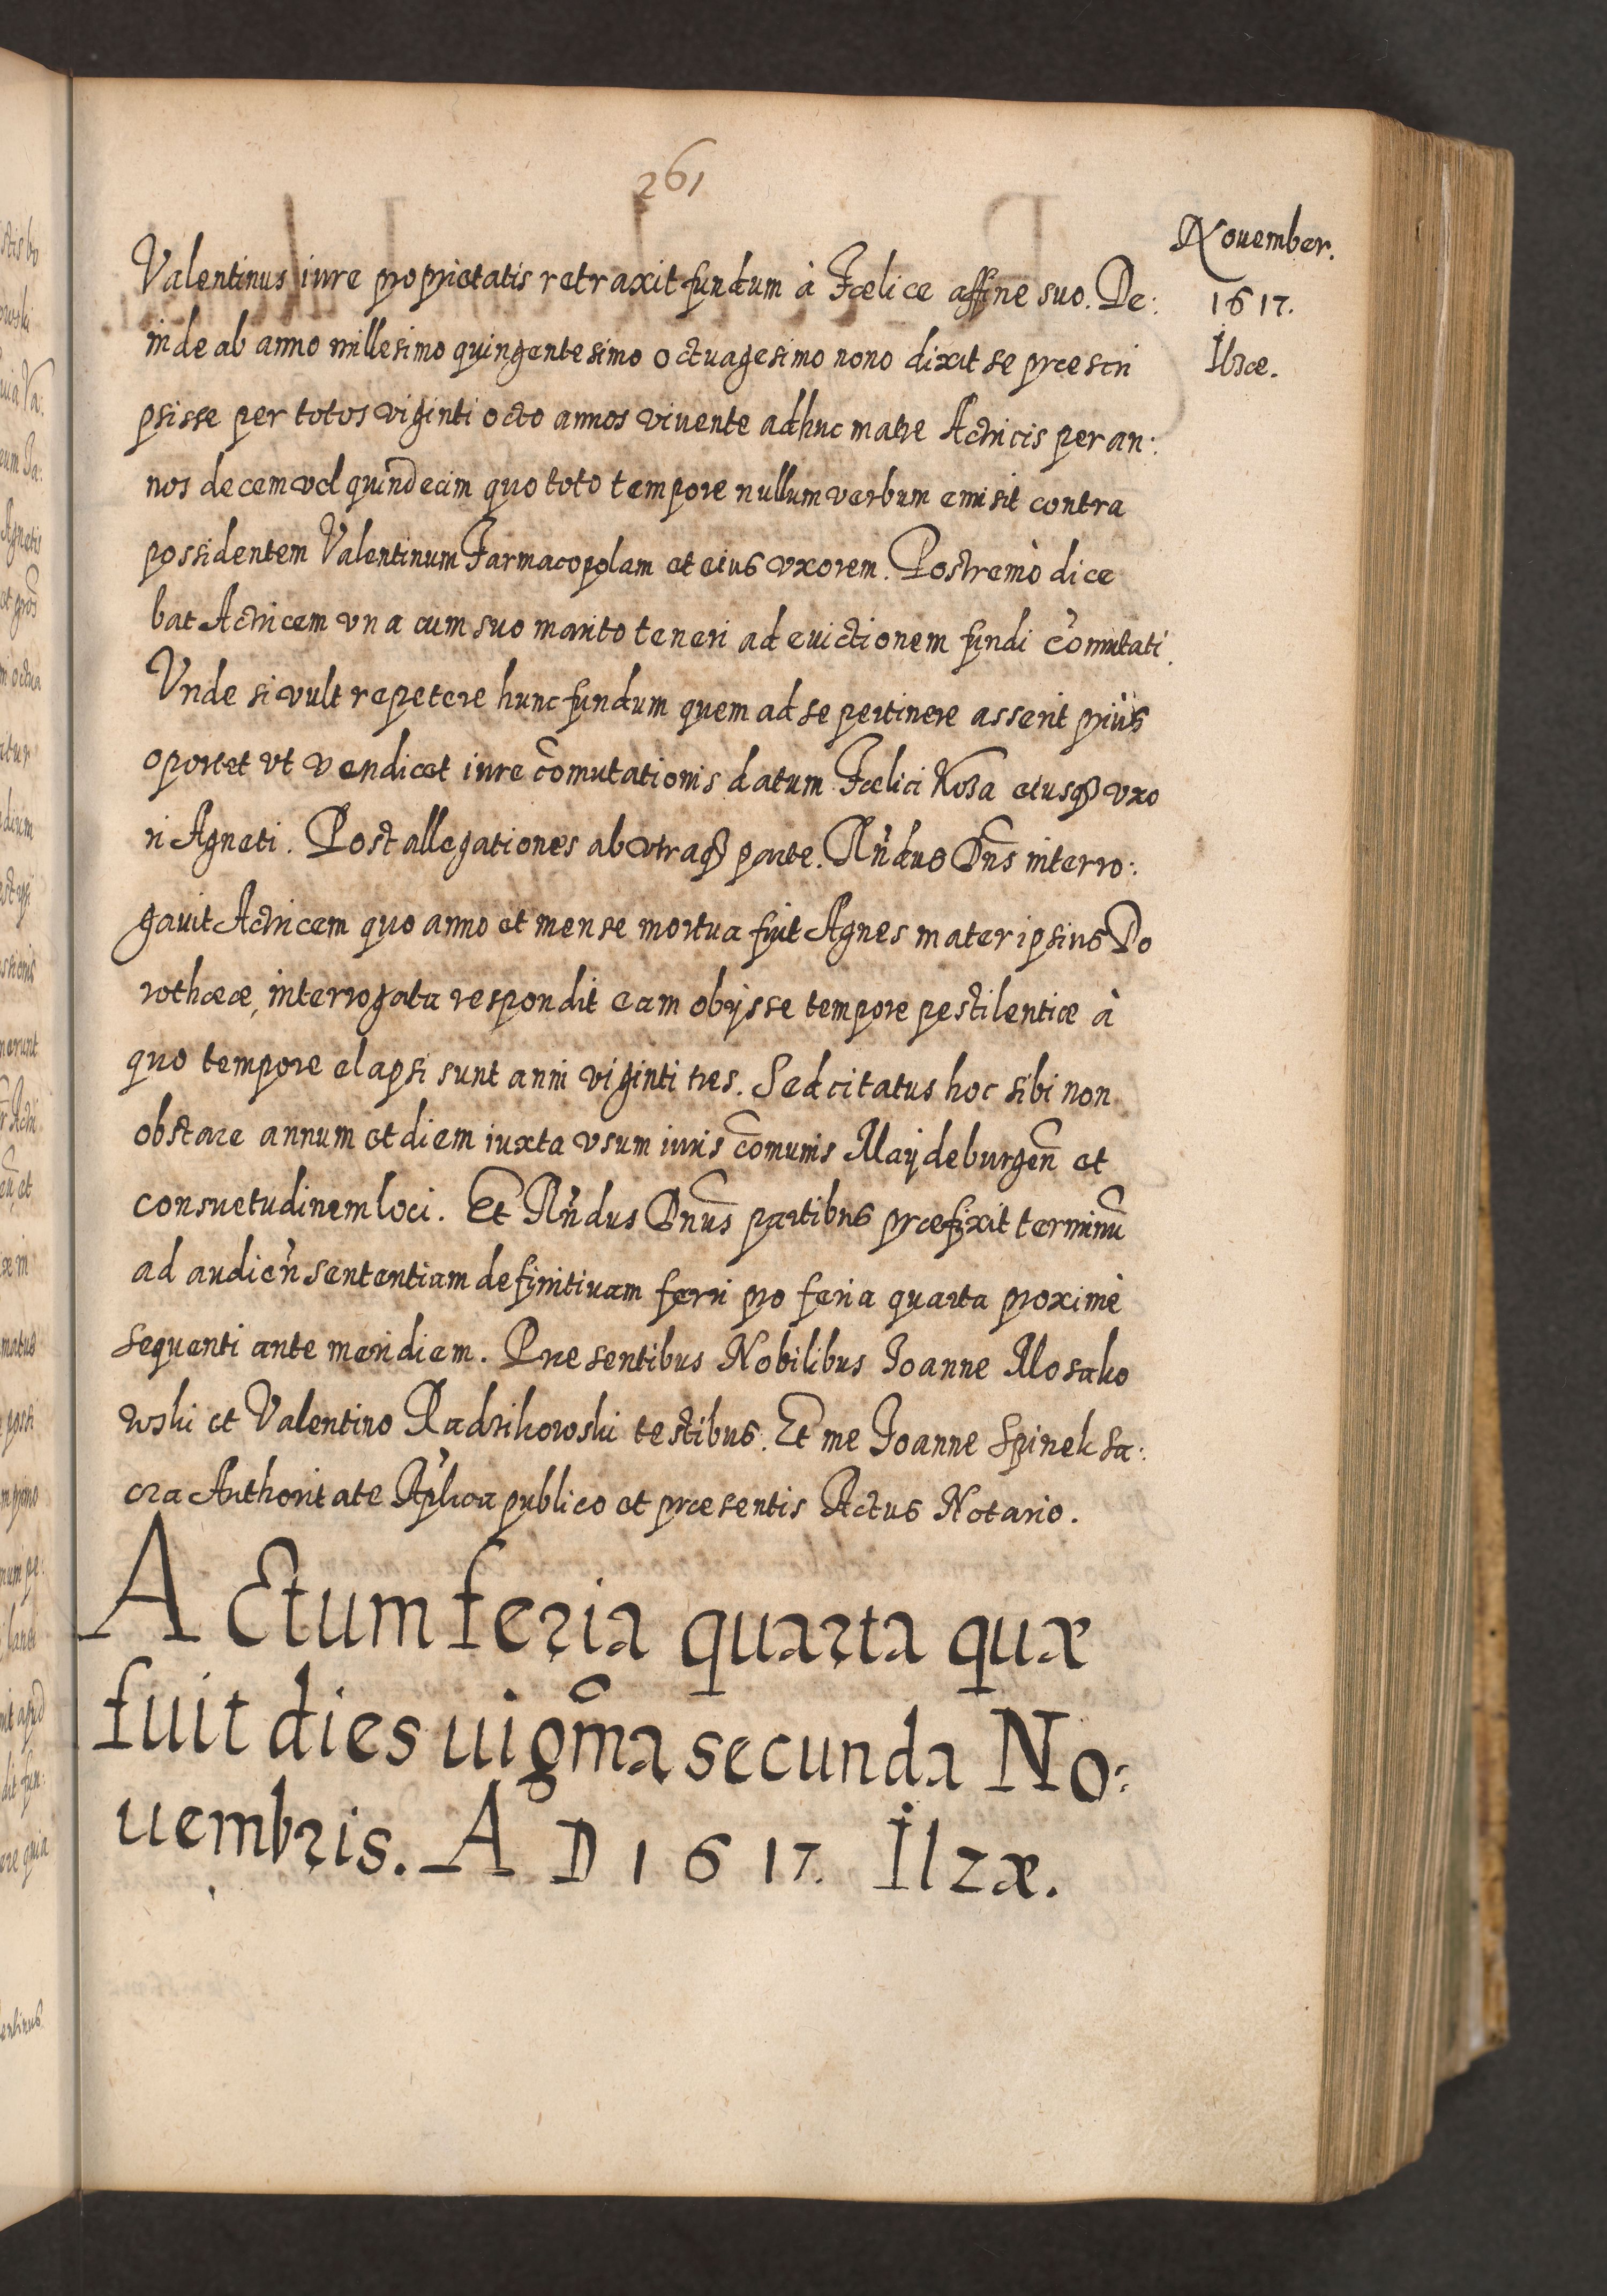 261
November.
1617.
Ilzæ.
Valentinus iure proprietatis retraxit fundum à Fœlice affine suo. De:
inde ab anno millesimo quingentesimo octuagesimo nono dixit se præscri
psisse per totos viginti octo annos vivente adhuc matre Actricis per an:
nos decem vel quindecim quo toto tempore nullum verbum emisit contra
possidentem Valentinum Farmacopolam et eius vxorem. Postremò dice
bat Actricem vna cum suo marito teneri ad evictionem fundi cõmutati.
Vnde si vult repetere hunc fundum quem ad se pertinere asserit priùs
oportet vt vendicet iure cõmutationis datum Fœlici Koza eiusq́ꝫ vxo
ri Agneti. Post allegationes ab vtraqꝫ parte. Rñdus Dñs interro:
gauit Actricem quo anno et mense mortua fuit Agnes mater ipsius Do
rothææ, interrogata respondit eam obijsse tempore pestilentiæ à
quo tempore elapsi sunt anni viginti tres. Sed citatus hoc sibi non
obstare annum et diem iuxta vsum iuris cõmunis Maijdeburgeñ et
consuetudinem loci. Et Rñdus Dnũs partibus præfixit terminũ
ad audieñ sententiam definitiuam ferri pro feria quarta proximè
sequenti ante meridiem. Præsentibus Nobilibus Joanne Mosako
wski et Valentino Radzikowski testibus. Et me Joanne Spinek sa:
cra Authoritate Aplica publico et præsentis Actus Notario.
Actum feria quarta quæ
fuit dies uigm̃a secunda No:
uembris. A D 1617. Ilzæ.